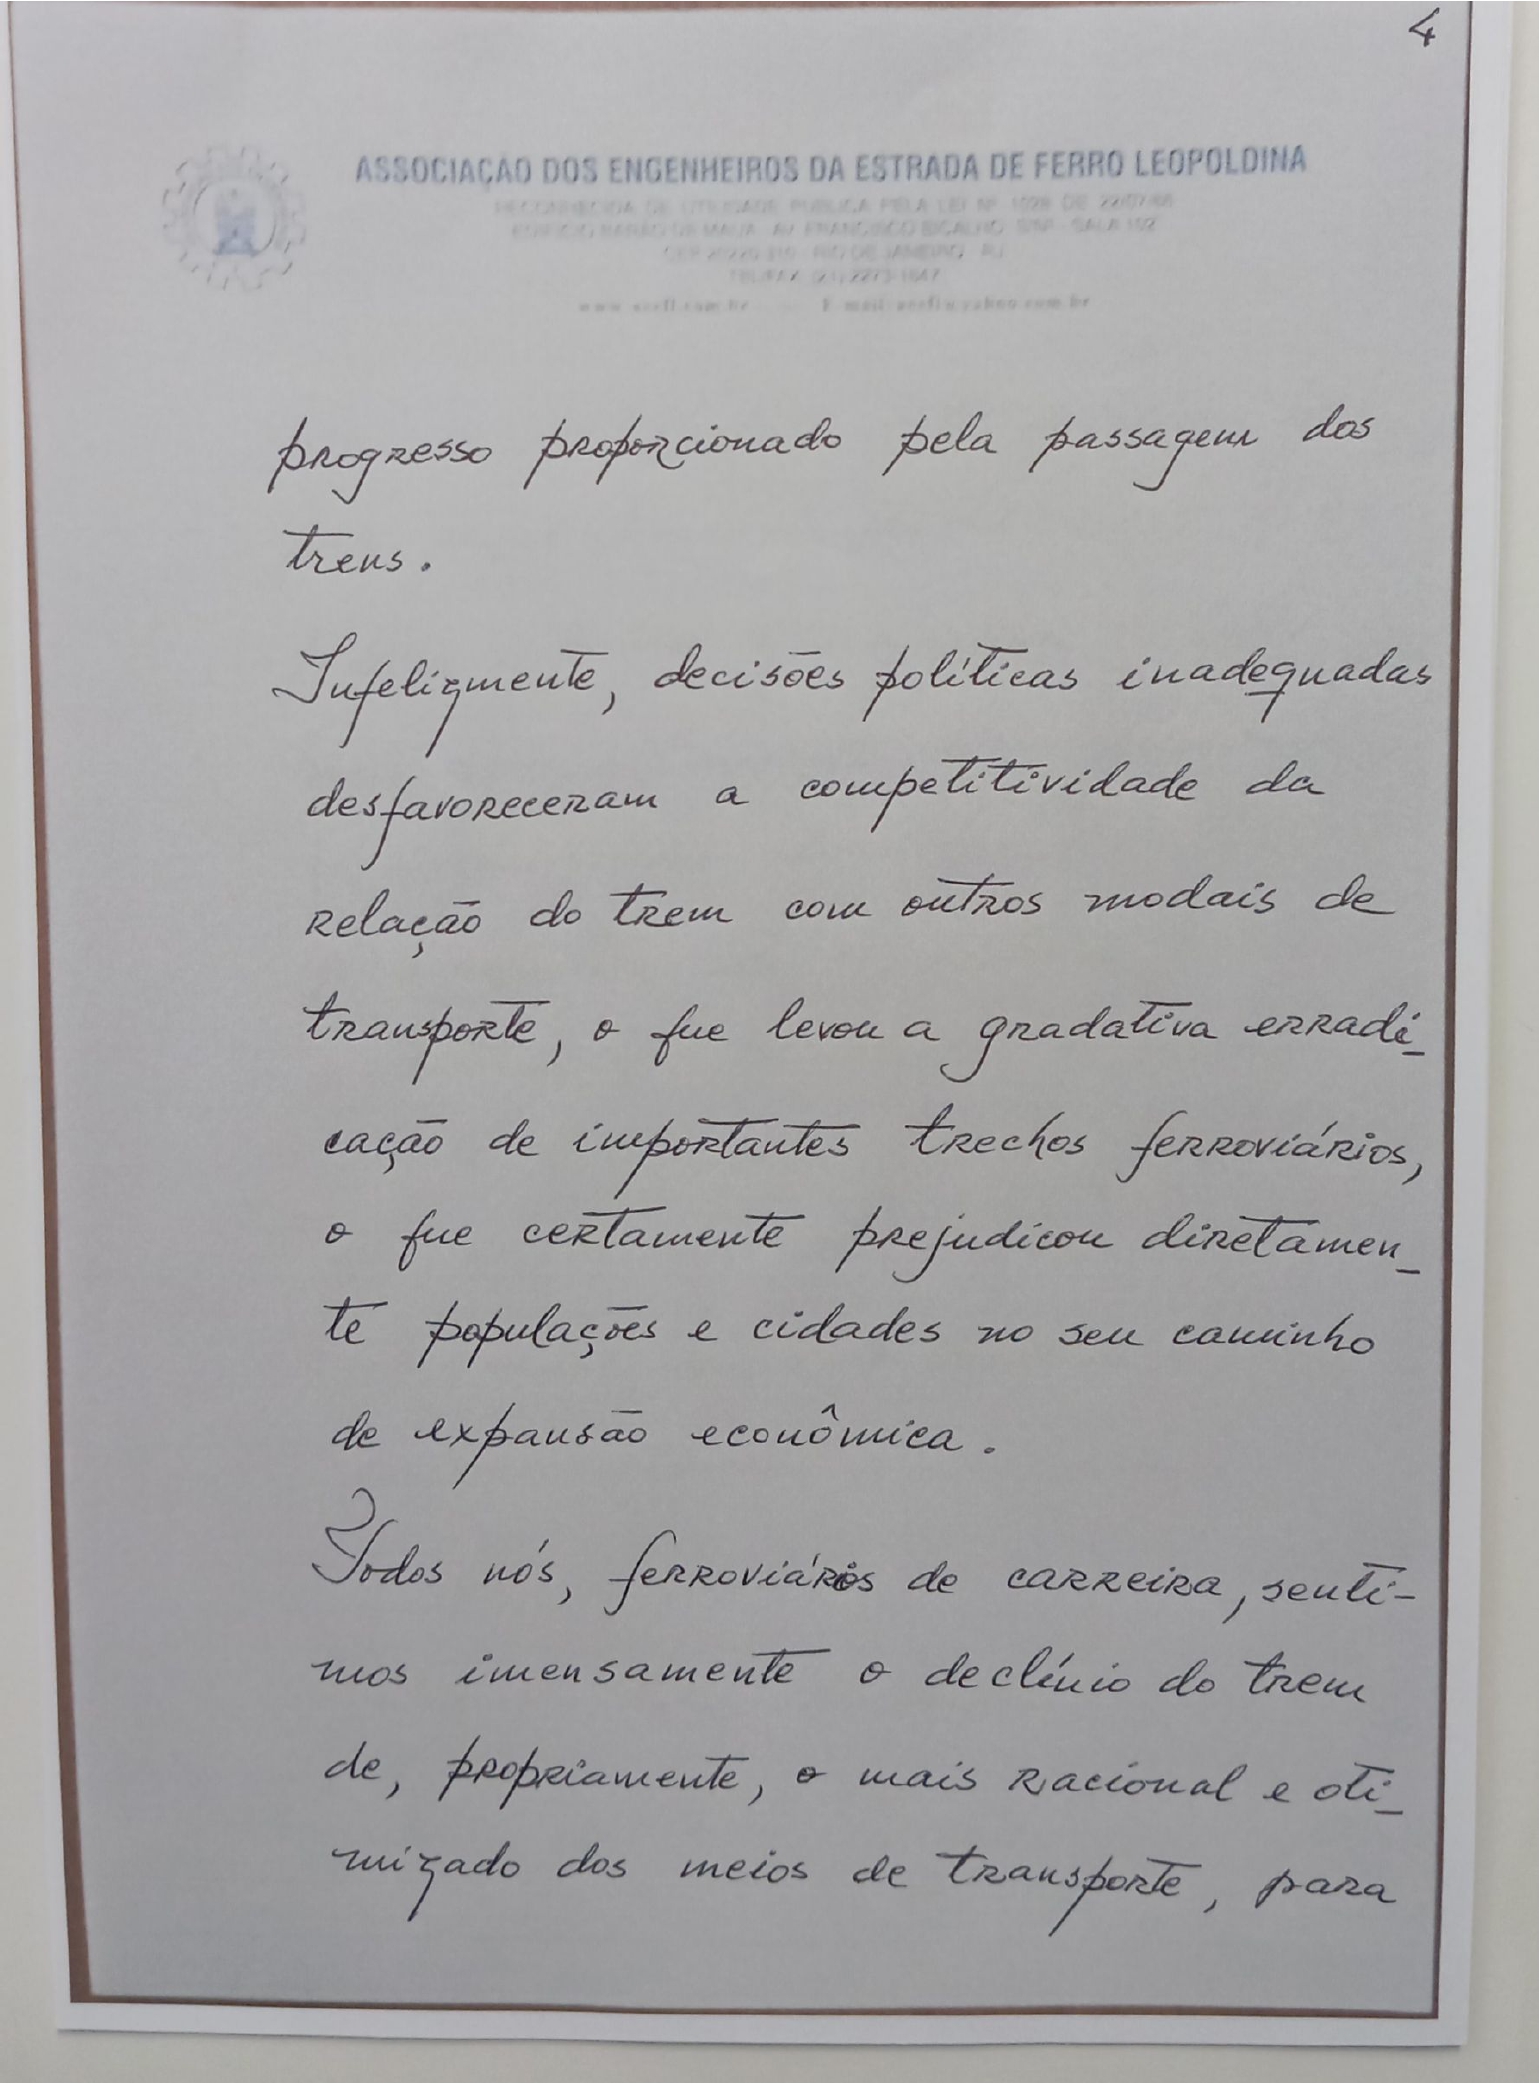 4
ASSOCIAÇÃO DOS ENGENHEIROS DA ESTRADA DE FERRO LEOPOLDINA
RECONHECIDA DE UTILIDADE PÚBLICA PELA LEI Nº DE
EDIFÍCIO BARÃO DE MAUÁ AV. FRANCISCO BICALHO, S/Nº - SALA 102
RIO DE JANEIRO - RJ
TEL/FAX: (21) 2273-1047
progresso proporcionado pela passagem dos
trens.
Infelizmente, decisões políticas inadequadas
desfavoreceram a competitividade da
relação do trem com outros modais de
transporte, o que levou a gradativa erradi-
cação de importantes trechos ferroviários,
o que certamente prejudicou diretamen-
te populações e cidades no seu caminho
de expansão econômica.
Todos nós, ferroviários de carreira, senti-
mos imensamente o declínio do trem
de, propriamente, o mais racional e oti-
mizado dos meios de transporte, para